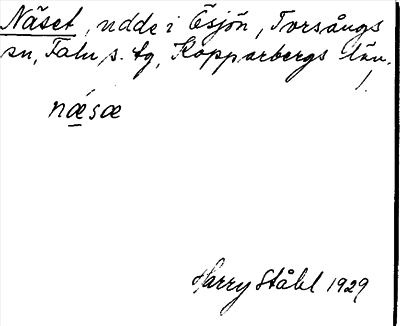 Näset, udde i Ösjön, Torsångs
sn, Falu s. tg, Kopparbergs län.
næ̀sæ
Harry Ståhl 1929